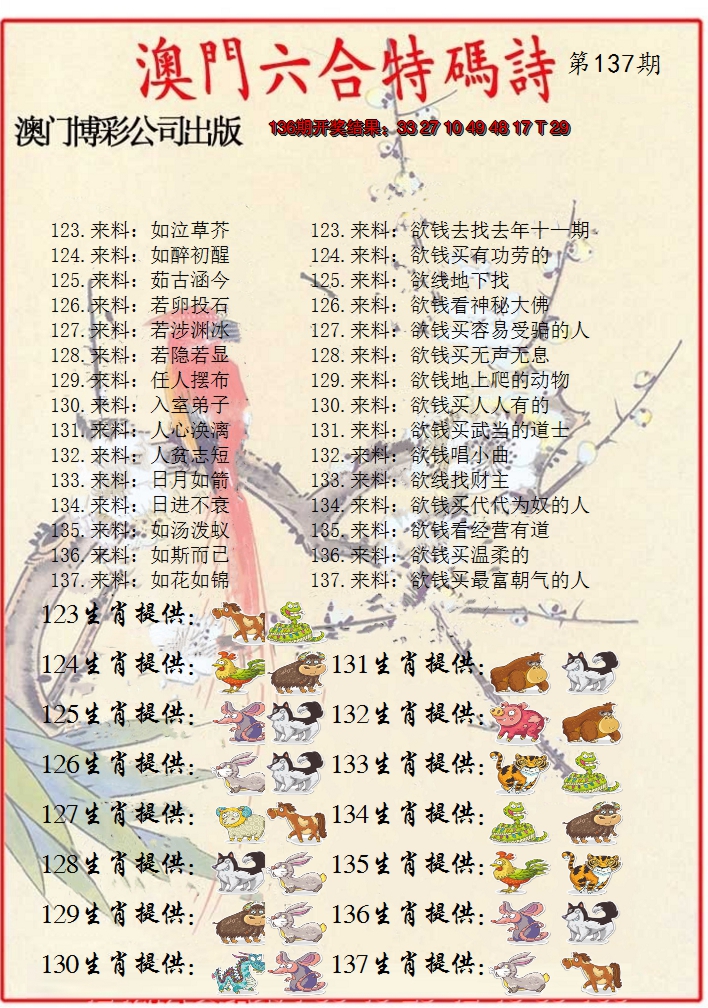 澳門六合特碼詩 第137期
澳门博彩公司出版 136期开奖结果：33 27 10 49 48 17 T 29
123.来料：如泣草芥 123.来料：欲钱去找去年十一期
124.来料：如醉初醒 124.来料：欲钱买有功劳的
125.来料：茹古涵今 125.来料：欲线地下找
126.来料：若卵投石 126.来料：欲钱看神秘大佛
127.来料：若涉渊冰 127.来料：欲钱买容易受骗的人
128.来料：若隐若显 128.来料：欲钱买无声无息
129.来料：任人摆布 129.来料：欲钱地上爬的动物
130.来料：入室弟子 130.来料：欲钱买人人有的
131.来料：人心涣漓 131.来料：欲钱买武当的道士
132.来料：人贫志短 132.来料：欲钱唱小曲
133.来料：日月如箭 133.来料：欲线找财主
134.来料：日进不衰 134.来料：欲钱买代代为奴的人
135.来料：如汤泼蚁 135.来料：欲钱看经营有道
136.来料：如斯而已 136.来料：欲钱买温柔的
137.来料：如花如锦 137.来料：欲钱买最富朝气的人
123生肖提供：
124生肖提供： 131生肖提供：
125生肖提供： 132生肖提供：
126生肖提供： 133生肖提供：
127生肖提供： 134生肖提供：
128生肖提供： 135生肖提供：
129生肖提供： 136生肖提供：
130生肖提供： 137生肖提供：